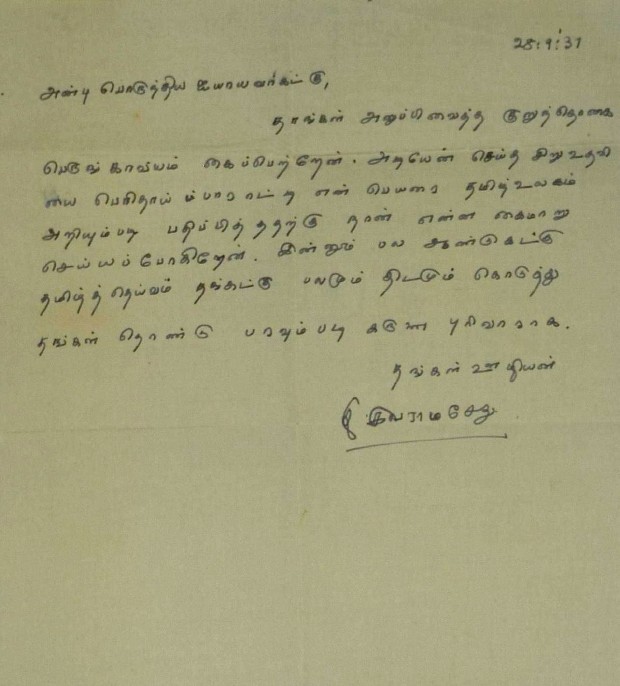 28.9.'37
அன்பு பொருத்திய ஐயாயவர்கட்கு,
தாங்கள் அனுப்பிவைத்த குறுந்தொகை
பெருங்காவியம் கைப்பெற்றேன். அடியேன் செய்த சிறு உதவி
யை பெரிதாய் பாராட்டி என் பெயரை தமிழ் உலகம்
அறியும்படி பதிப்பித்ததற்கு நான் என்ன கைமாறு
செய்யப் போகிறேன். இன்னும் பல ஆண்டுகட்கு
தமிழ்த் தெய்வம் தங்கட்கு பலமும் திடமும் கொடுத்து
தங்கள் தொண்டு பரவும்படி கருணை புரிவாராக.
தங்கள் ஊழியன்